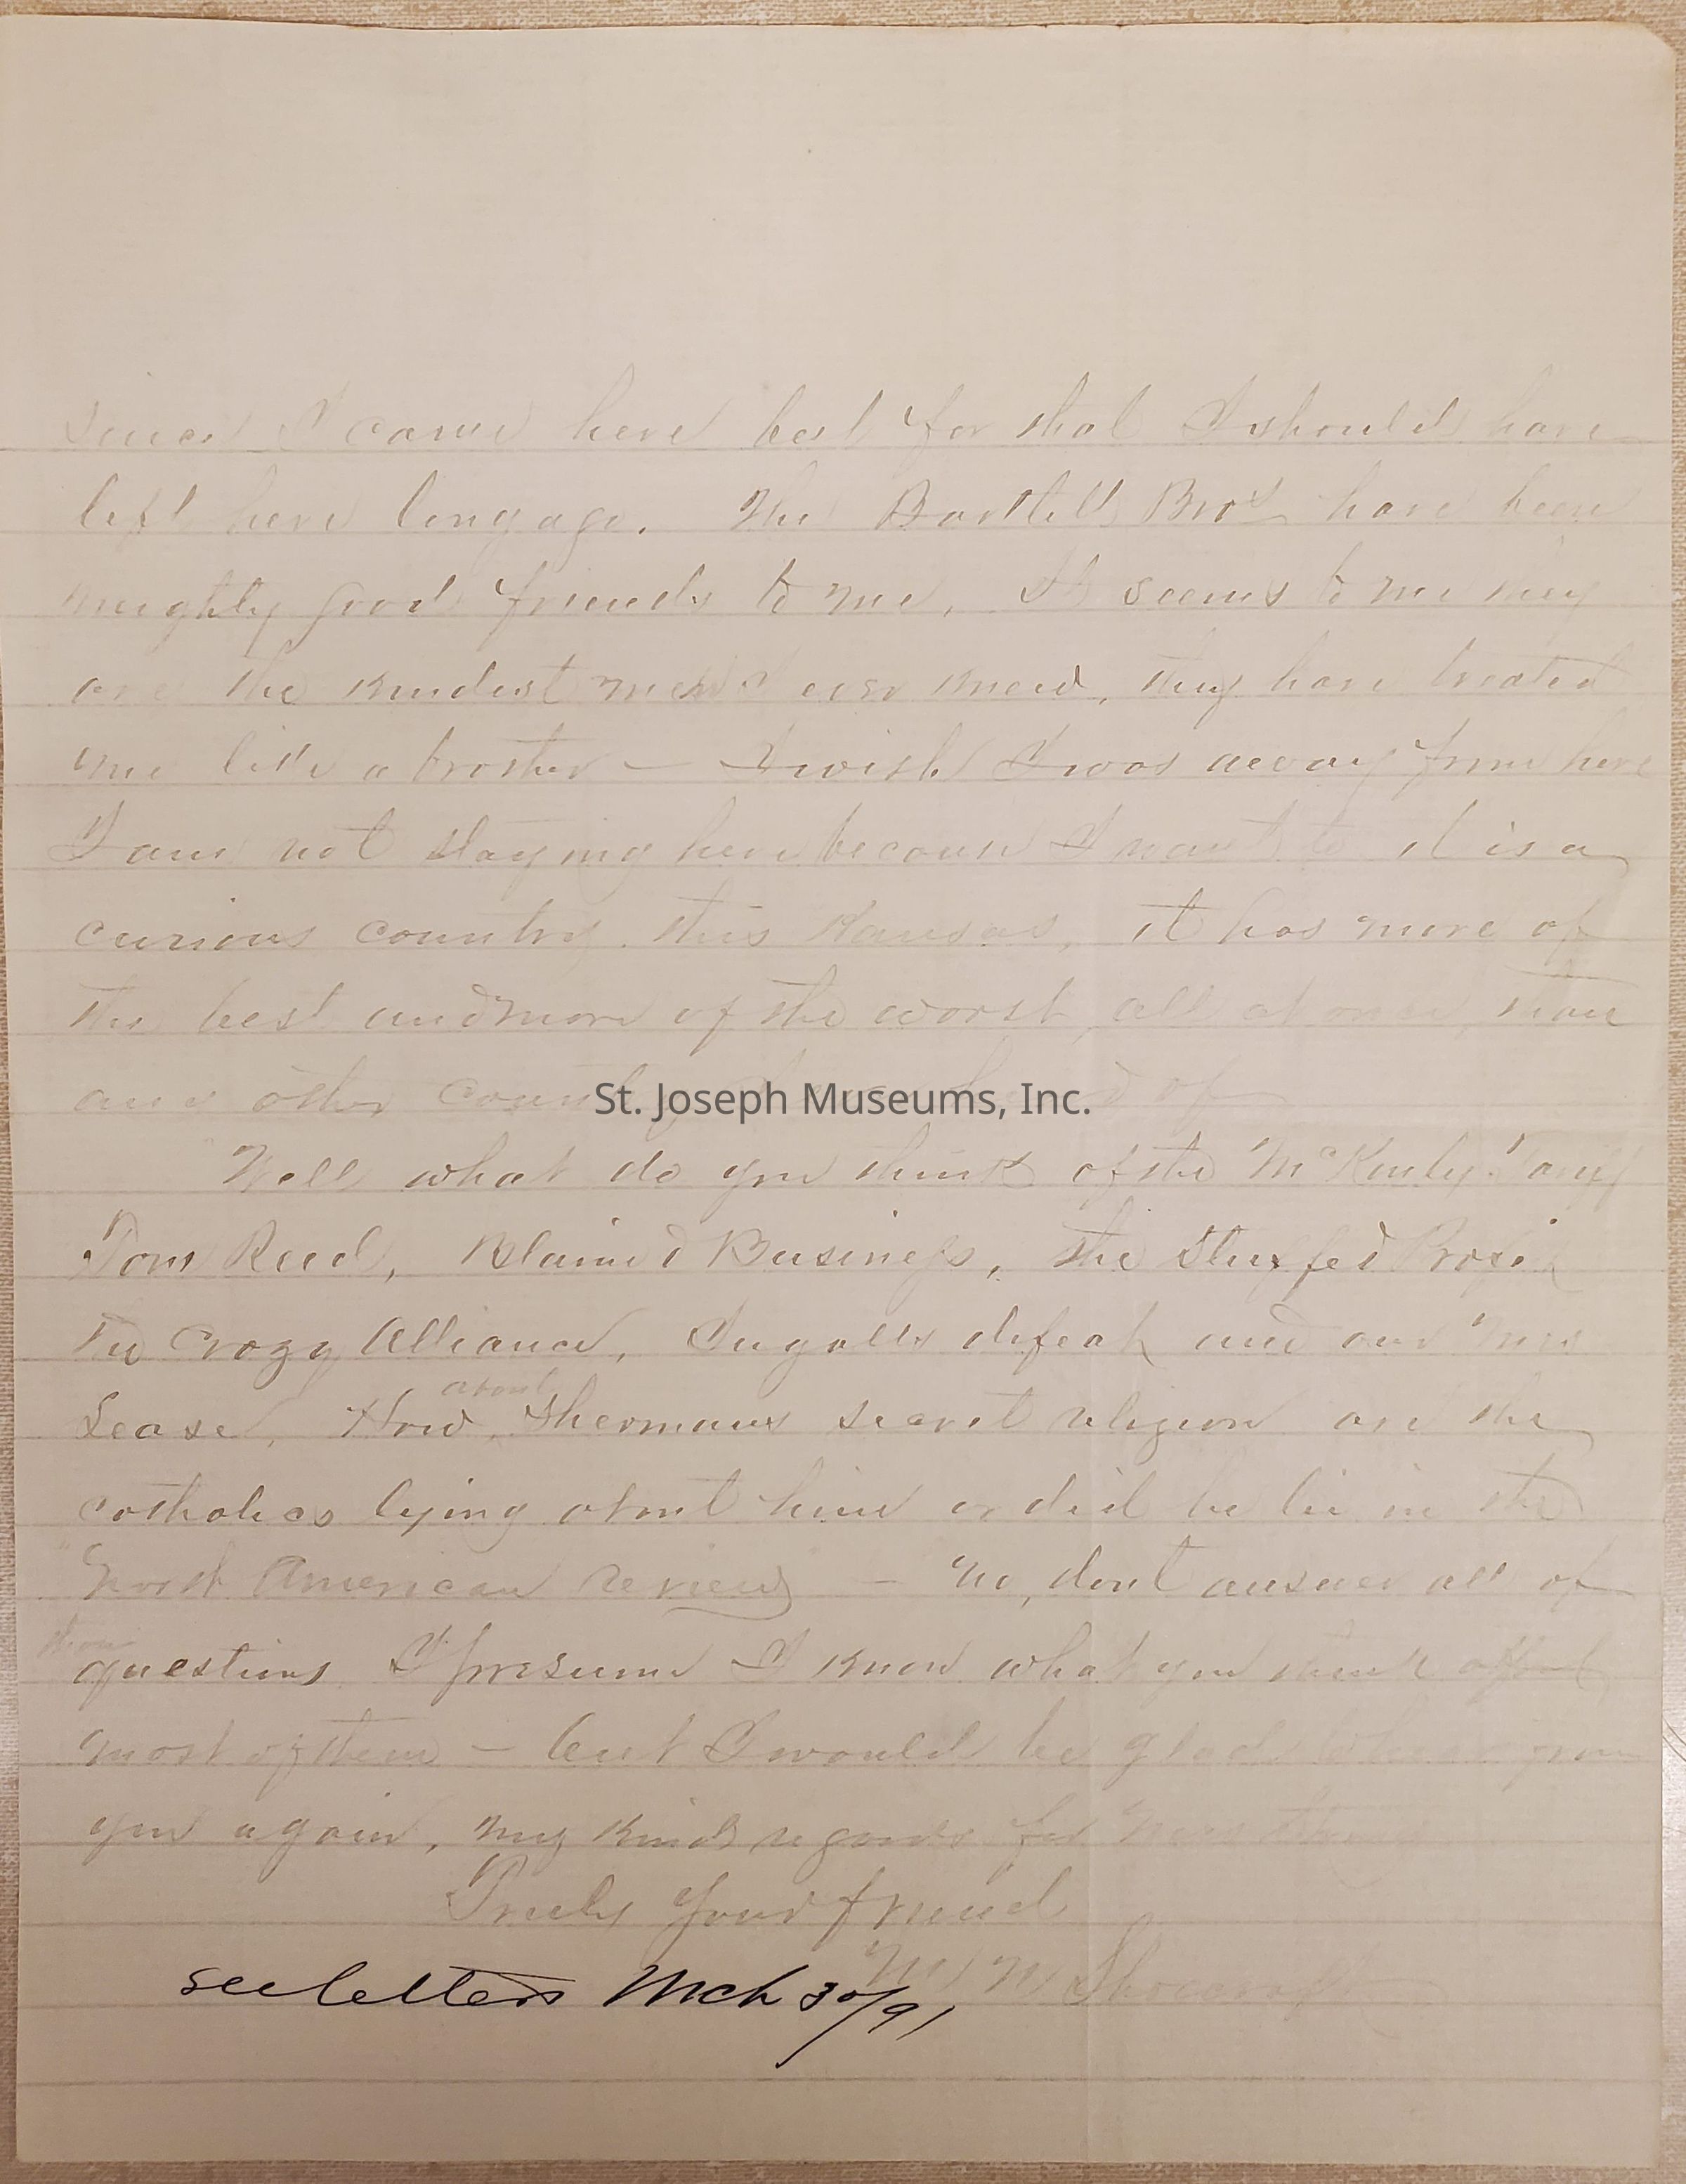 since I came here but for that I should have
left here long ago. The Bartlett Bros have been
mighty good friends to me, It seems to me they
are the kindest men I ever knew, they have treated
me like a brother — I wish I was away from here
I am not staying here because I want to it is a
curious country this Kansas, it has more of
the best and more of the worst, all at once, than
any other country of
St. Joseph Museums, Inc.
Well what do you think of the McKinly Tariff
Tom Reed, Blaine & Business, the Stuffed
The Crazy Alliance, Ingalls defeat and our Mrs
Lease, How about Shermans secret religion are the
catholics lying about him or did he lie in the
North American review — No, dont answer all of
questions I presume I know what you think about
most of them — but I would be glad to hear from
you again, my kind regards
Truly your friend
M M
see letters Mch 30/91